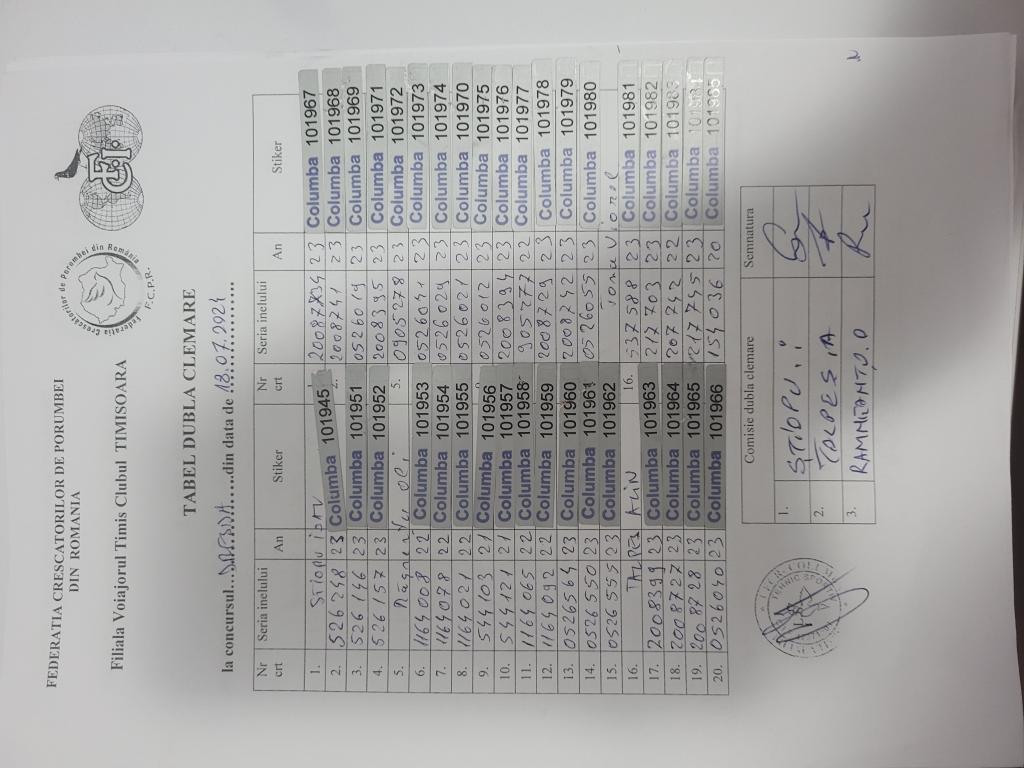 FEDERATIA CRESCATORILOR DE PORUMBEI
DIN ROMANIA
Filiala Voiajorul Timis Clubul TIMISOARA
Federatia Crescatorilor de Porumbei din România
F.C.P.R.
FCI
TABEL DUBLA CLEMARE
la concursul.............din data de 18.07.2024
Nr crt Seria inelului An Stiker Nr crt Seria inelului An Stiker
1. Stiopu Columba 101945 20087734 23 Columba 101967
2. 526248 23 2. 2008741 23 Columba 101968
3. 526146 23 Columba 101951 0526019 23 Columba 101969
4. 526157 23 Columba 101952 2008395 23 Columba 101971
5. 5. 0905278 23 Columba 101972
6. 1164008 22 Columba 101953 0526041 23 Columba 101973
7. 1164078 22 Columba 101954 0526029 23 Columba 101974
8. 1164021 22 Columba 101955 0526021 23 Columba 101970
9. 544103 21 Columba 101956 0526012 23 Columba 101975
10. 544121 21 Columba 101957 2008394 23 Columba 101976
11. 1164065 22 Columba 101958 905777 22 Columba 101977
12. 1164092 22 Columba 101959 2008729 23 Columba 101978
13. 0526564 23 Columba 101960 2008742 23 Columba 101979
14. 0526550 23 Columba 101961 0526055 23 Columba 101980
15. 0526555 23 Columba 101962 Tonca Viorel
16. TALPES ALIN 16. 537588 23 Columba 101981
17. 2008399 23 Columba 101963 217703 23 Columba 101982
18. 2008727 23 Columba 101964 207242 22 Columba 101983
19. 2008728 23 Columba 101965 217745 23 Columba 101984
20. 0526040 23 Columba 101966 154036 20 Columba 101985
Comisie dubla clemare Semnatura
1. STIOPU.i
2. TOLPES.A
3. RAMNEANTU.O